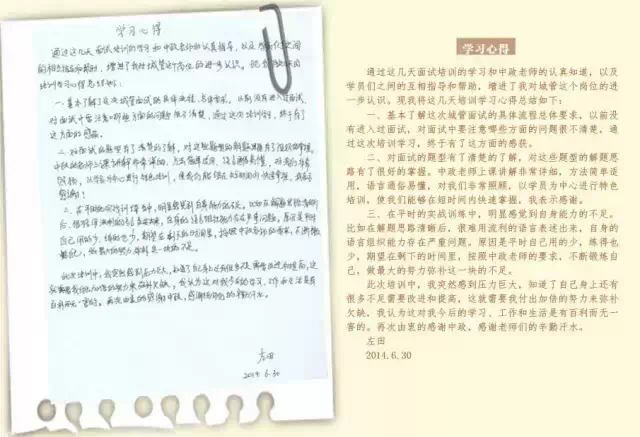 学习心得
通过这几天面试培训的学习和中政老师的认真指导，以及学员们之间
的相互指导和帮助，增进了我对城管这个岗位的进一步认识。现我将这几天
培训学习心得总结如下：
一、基本了解了这次城管面试的具体流程、总体要求，以前没有进入过面试，
对面试中要注意哪些方面的问题很不清楚，通过这次培训学习，终于有了
这方面的感获。
二、对面试的题型有了清楚的了解，对这些题型的解题思路有了很好的掌握，
中政老师上课讲解非常详细，方法简单适用，语言通俗易懂，对我们非常
照顾，以学员为中心进行特色培训，使我们能够在短时间内快速掌握，我表示
感谢！
三、在平时的实战训练中，明显感觉到自身能力的不足。比如在解题思路清晰
后，很难用流利的语言表述出来，自身的语言组织能力存在严重问题，原因是平时
自己用的少，练得也少，期望在剩下的时间里，按照中政老师的要求，不断锻炼
自己，做最大的努力弥补这一块的不足。
此次培训中，我突然感到压力巨大，知道了自身上还有很多不足需要改进和提高，这
就需要我付出加倍的努力来弥补欠缺，我认为这对我今后的学习、工作和生活是有
百利而无一害的。再次由衷的感谢中政，感谢老师们的辛勤汗水。
左田
2014.6.30
学习心得
通过这几天面试培训的学习和中政老师的认真知道，以及
学员们之间的互相指导和帮助，增进了我对城管这个岗位的进
一步认识。现我将这几天培训学习心得总结如下：
一、基本了解这次城管面试的具体流程总体要求，以前没
有进入过面试，对面试中要注意哪些方面的问题很不清楚，通
过这次培训学习，终于有了这方面的感获。
二、对面试的题型有了清楚的了解，对这些题型的解题思
路有了很好的掌握。中政老师上课讲解非常详细，方法简单适
用，语言通俗易懂，对我们非常照顾，以学员为中心进行特色
培训，使我们能够在短时间内快速掌握，我表示感谢。
三、在平时的实战训练中，明显感觉到自身能力的不足。
比如在解题思路清晰后，很难用流利的语言表述出来，自身的
语言组织能力存在严重问题。原因是平时自己用的少，练得也
少，期望在剩下的时间里，按照中政老师的要求，不断锻炼自
己，做最大的努力弥补这一块的不足。
此次培训中，我突然感到压力巨大，知道了自己身上还有
很多不足需要改进和提高，这就需要我付出加倍的努力来弥补
欠缺，我认为这对我今后的学习、工作和生活是有百利而无一
害的。再次由衷的感谢中政，感谢老师们的辛勤汗水。
左田
2014.6.30